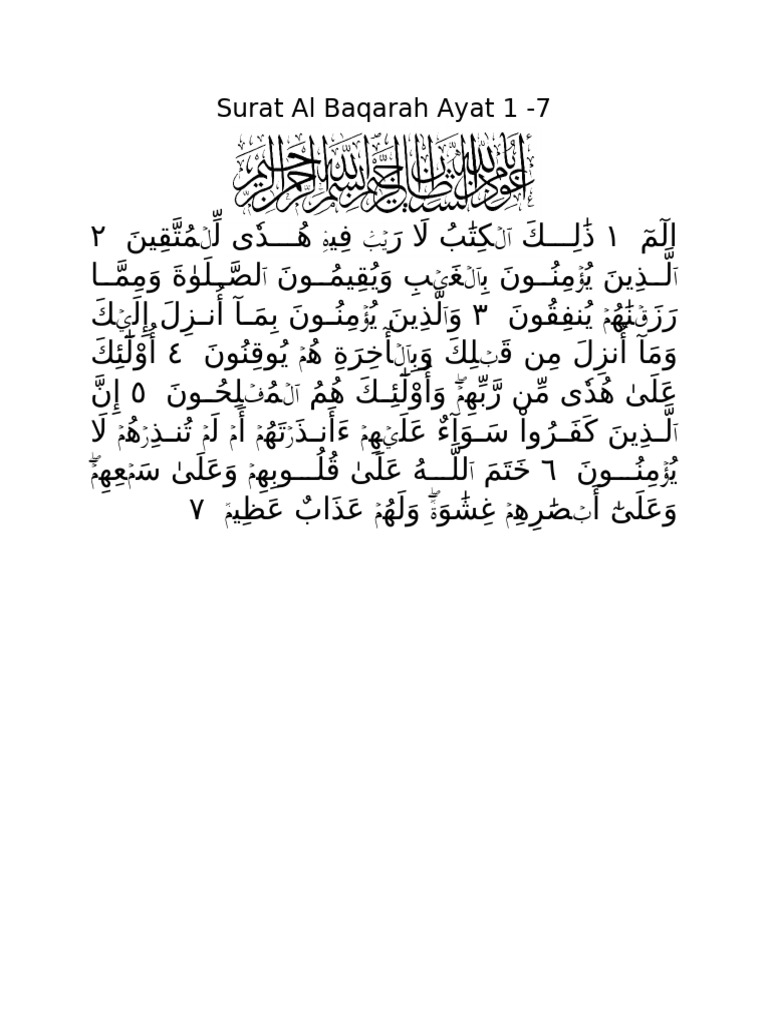 Surat Al Baqarah Ayat 1 -7
أعوذ بالله من الشيطان الرجيم بسم الله الرحمن الرحيم
الٓمٓ ١ ذَٰلِكَ ٱلۡكِتَٰبُ لَا رَيۡبَۛ فِيهِۛ هُدٗى لِّلۡمُتَّقِينَ ٢
ٱلَّذِينَ يُؤۡمِنُونَ بِٱلۡغَيۡبِ وَيُقِيمُونَ ٱلصَّلَوٰةَ وَمِمَّا
رَزَقۡنَٰهُمۡ يُنفِقُونَ ٣ وَٱلَّذِينَ يُؤۡمِنُونَ بِمَآ أُنزِلَ إِلَيۡكَ
وَمَآ أُنزِلَ مِن قَبۡلِكَ وَبِٱلۡأٓخِرَةِ هُمۡ يُوقِنُونَ ٤ أُوْلَٰٓئِكَ
عَلَىٰ هُدٗى مِّن رَّبِّهِمۡۖ وَأُوْلَٰٓئِكَ هُمُ ٱلۡمُفۡلِحُونَ ٥ إِنَّ
ٱلَّذِينَ كَفَرُواْ سَوَآءٌ عَلَيۡهِمۡ ءَأَنذَرۡتَهُمۡ أَمۡ لَمۡ تُنذِرۡهُمۡ لَا
يُؤۡمِنُونَ ٦ خَتَمَ ٱللَّهُ عَلَىٰ قُلُوبِهِمۡ وَعَلَىٰ سَمۡعِهِمۡۖ
وَعَلَىٰٓ أَبۡصَٰرِهِمۡ غِشَٰوَةٞۖ وَلَهُمۡ عَذَابٌ عَظِيمٞ ٧